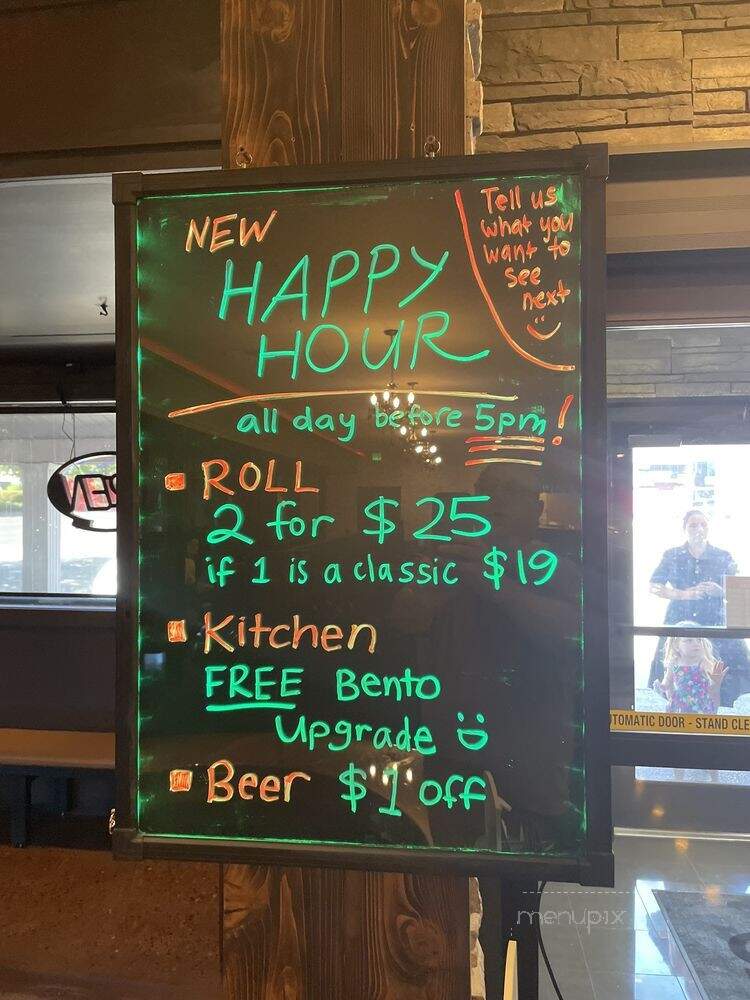 NEW
HAPPY
HOUR
Tell us
what you
want to
see
next
all day before 5pm!
ROLL
2 for $25
if 1 is a classic $19
Kitchen
FREE Bento
Upgrade
Beer $1 off
AUTOMATIC DOOR - STAND CLE
menupix